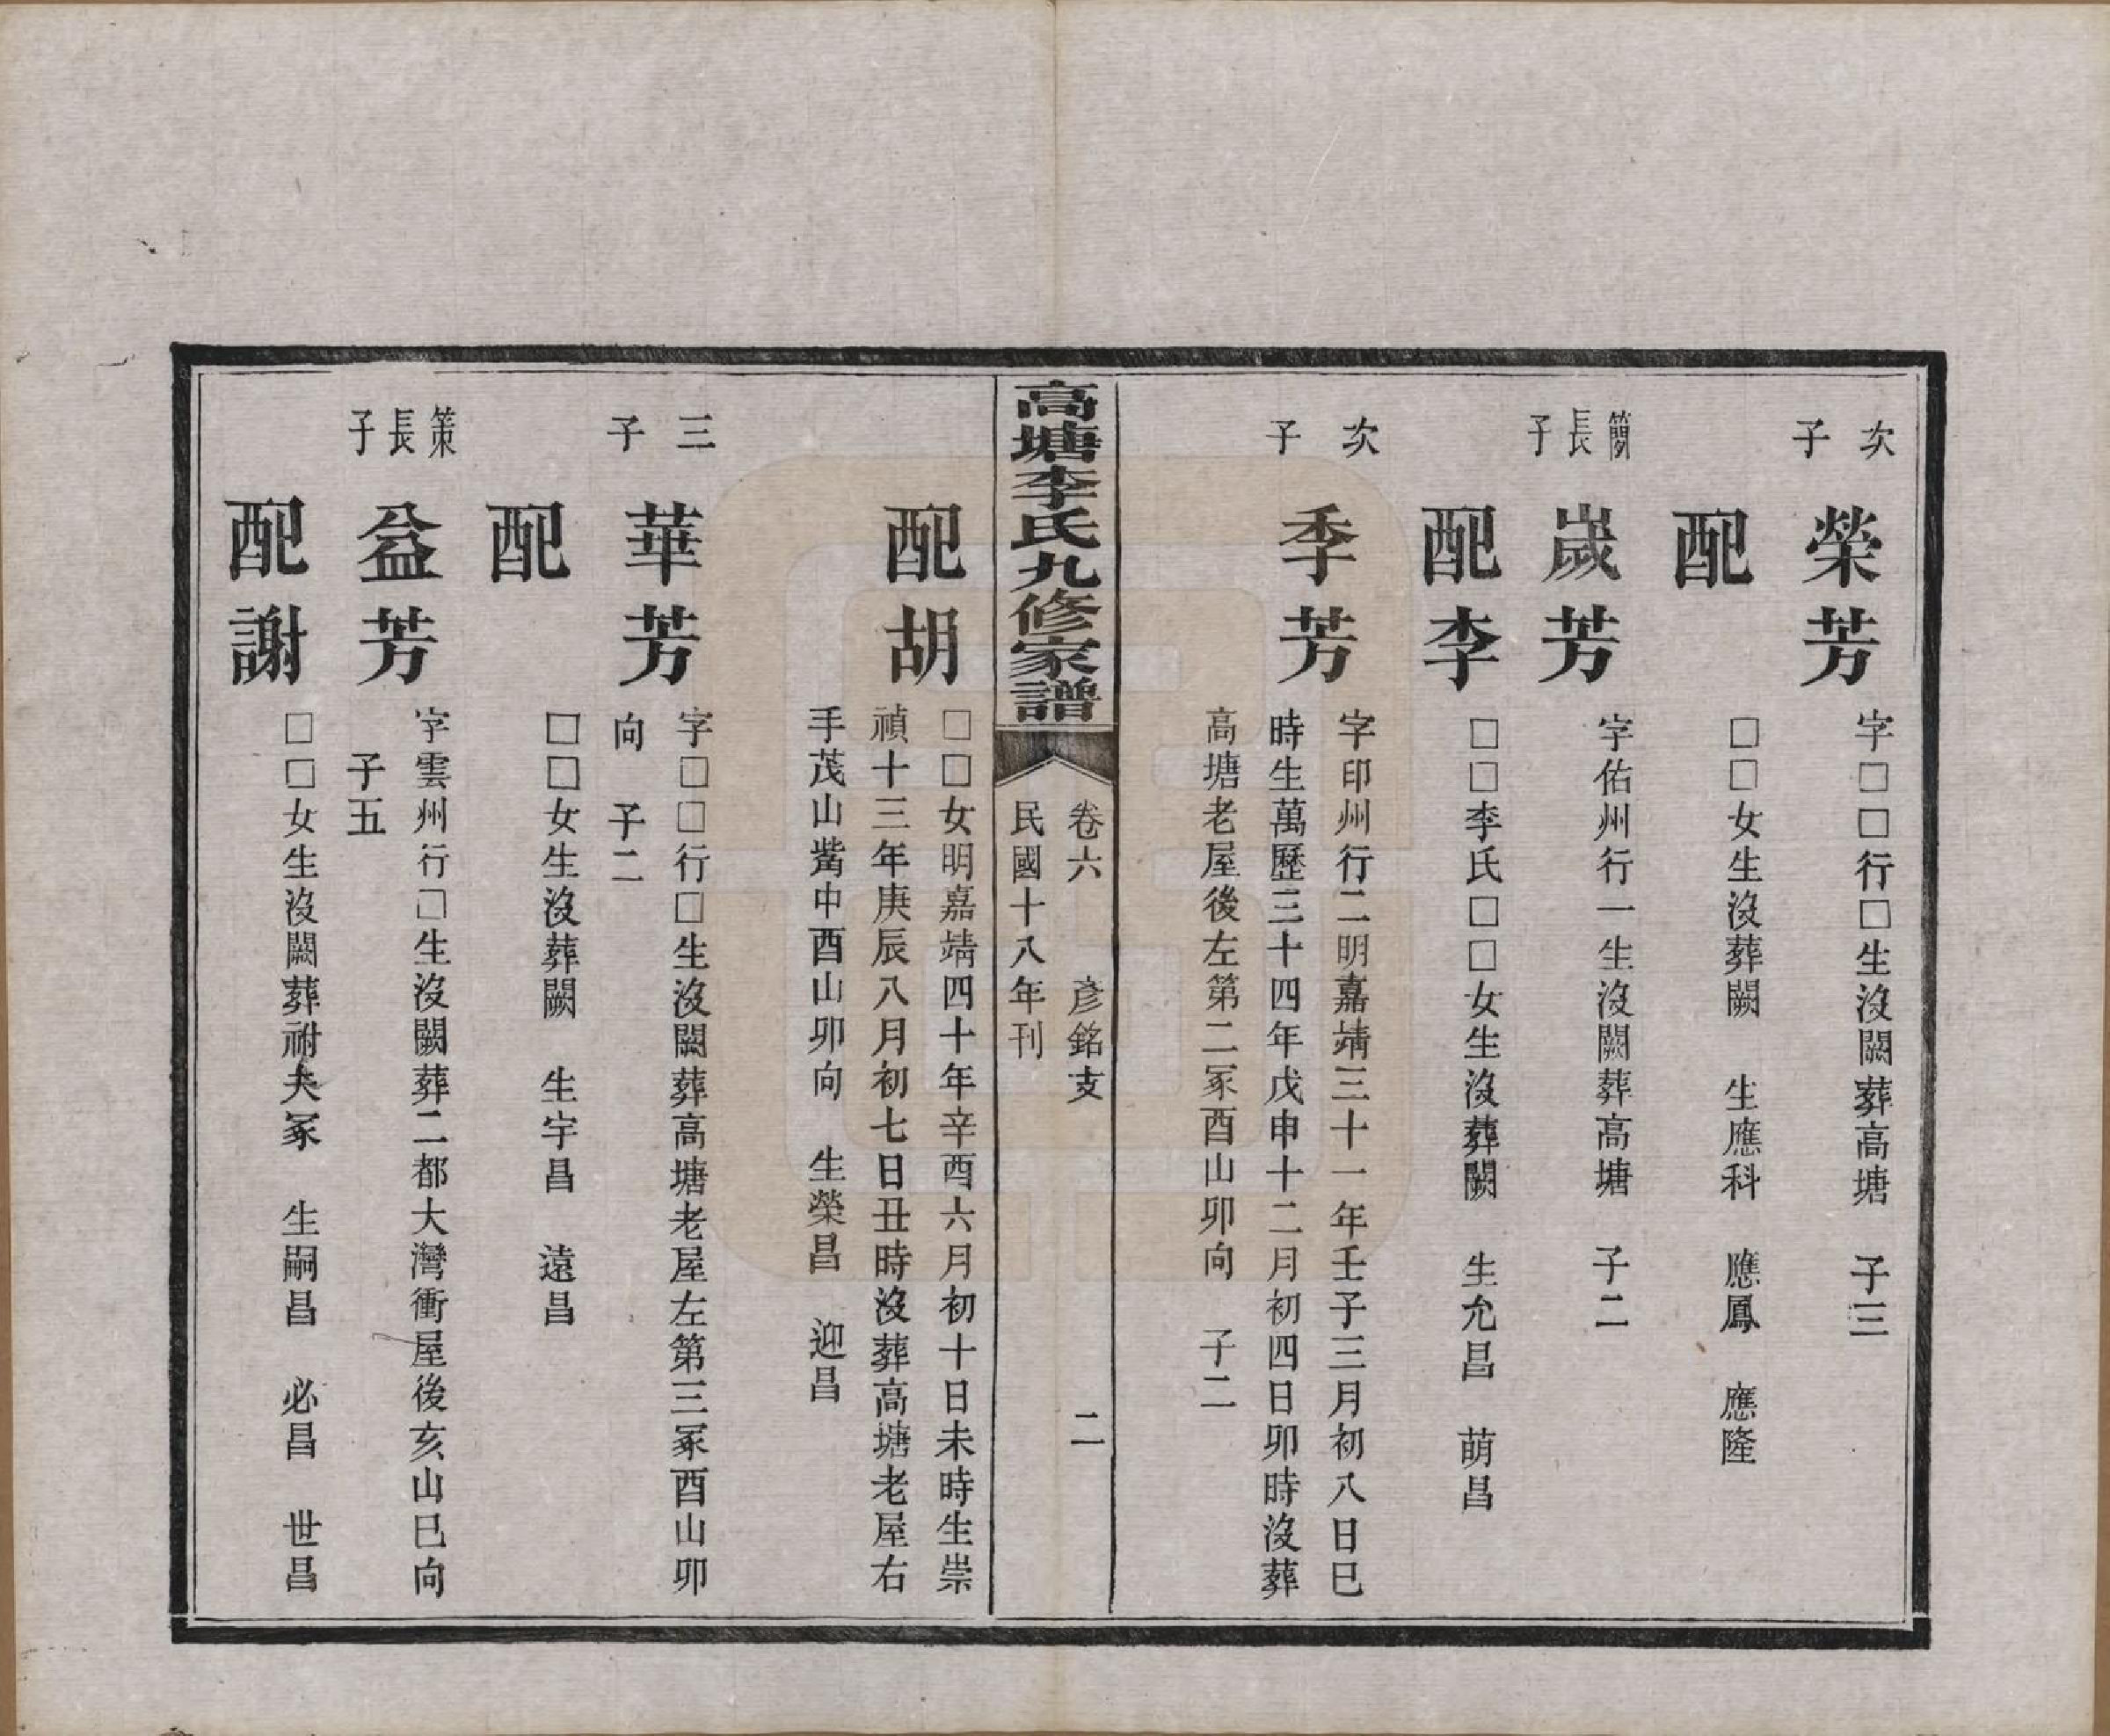 次子
榮芳
字□□行□生沒闕葬高塘　子三
配
□□女生沒葬闕　生應科　應鳳　應隆
簡長子
嵗芳
字佑州行一生沒闕葬高塘　子二
配李
□□李氏□□女生沒葬闕　生允昌　萌昌
次子
季芳
字印州行二明嘉靖三十一年壬子三月初八日巳
時生萬歷三十四年戊申十二月初四日卯時沒葬
高塘老屋後左第二冢酉山卯向　子二
高塘李氏九修家譜
卷六　彦銘支　二
民國十八年刊
配胡
□□女明嘉靖四十年辛酉六月初十日未時生崇
禎十三年庚辰八月初七日丑時沒葬高塘老屋右
手茂山嘴中酉山卯向　生榮昌　迎昌
三子
華芳
字□□行□生沒闕葬高塘老屋左第三冢酉山卯
向　子二
配
□□女生沒葬闕　生宇昌　遠昌
策長子
益芳
字雲州行□生沒闕葬二都大灣衝屋後亥山巳向
子五
配謝
□□女生沒闕葬祔夫冢　生嗣昌　必昌　世昌